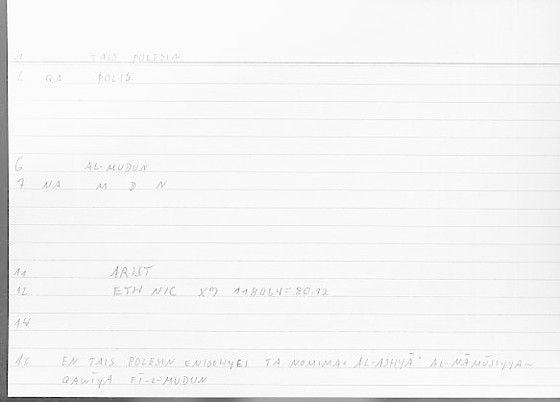 1 TAIS POLESIN
2 QA POLIS
6 AL-MUDUN
7 NA M D N
11 ARIST
12 ETH NIC X9 1180b4=80.12
14
16 EN TAIS POLESIN ENISCHYEI TA NOMIMA= AL-ASHYĀʾ AL-NĀMŪSIYYA-
QAWĪYA FĪ-L-MUDUN